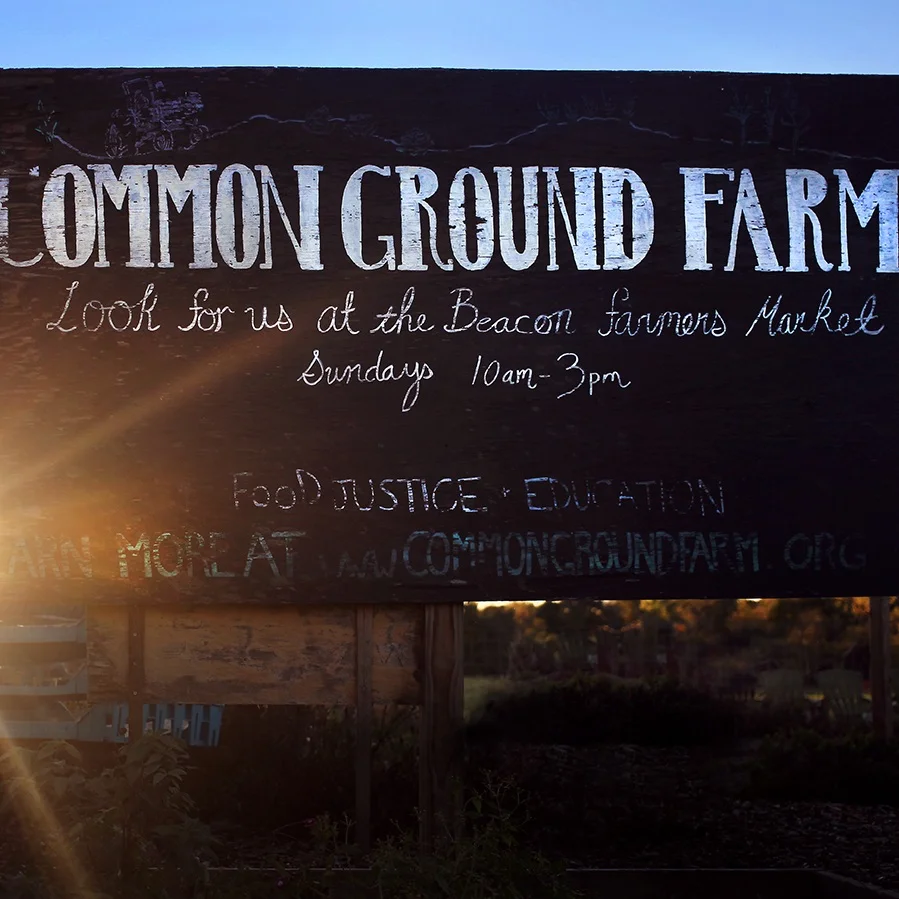 COMMON GROUND FARM
Look for us at the Beacon farmers Market
Sundays 10am-3pm
FOOD JUSTICE • EDUCATION
LEARN MORE AT www.COMMONGROUNDFARM.ORG